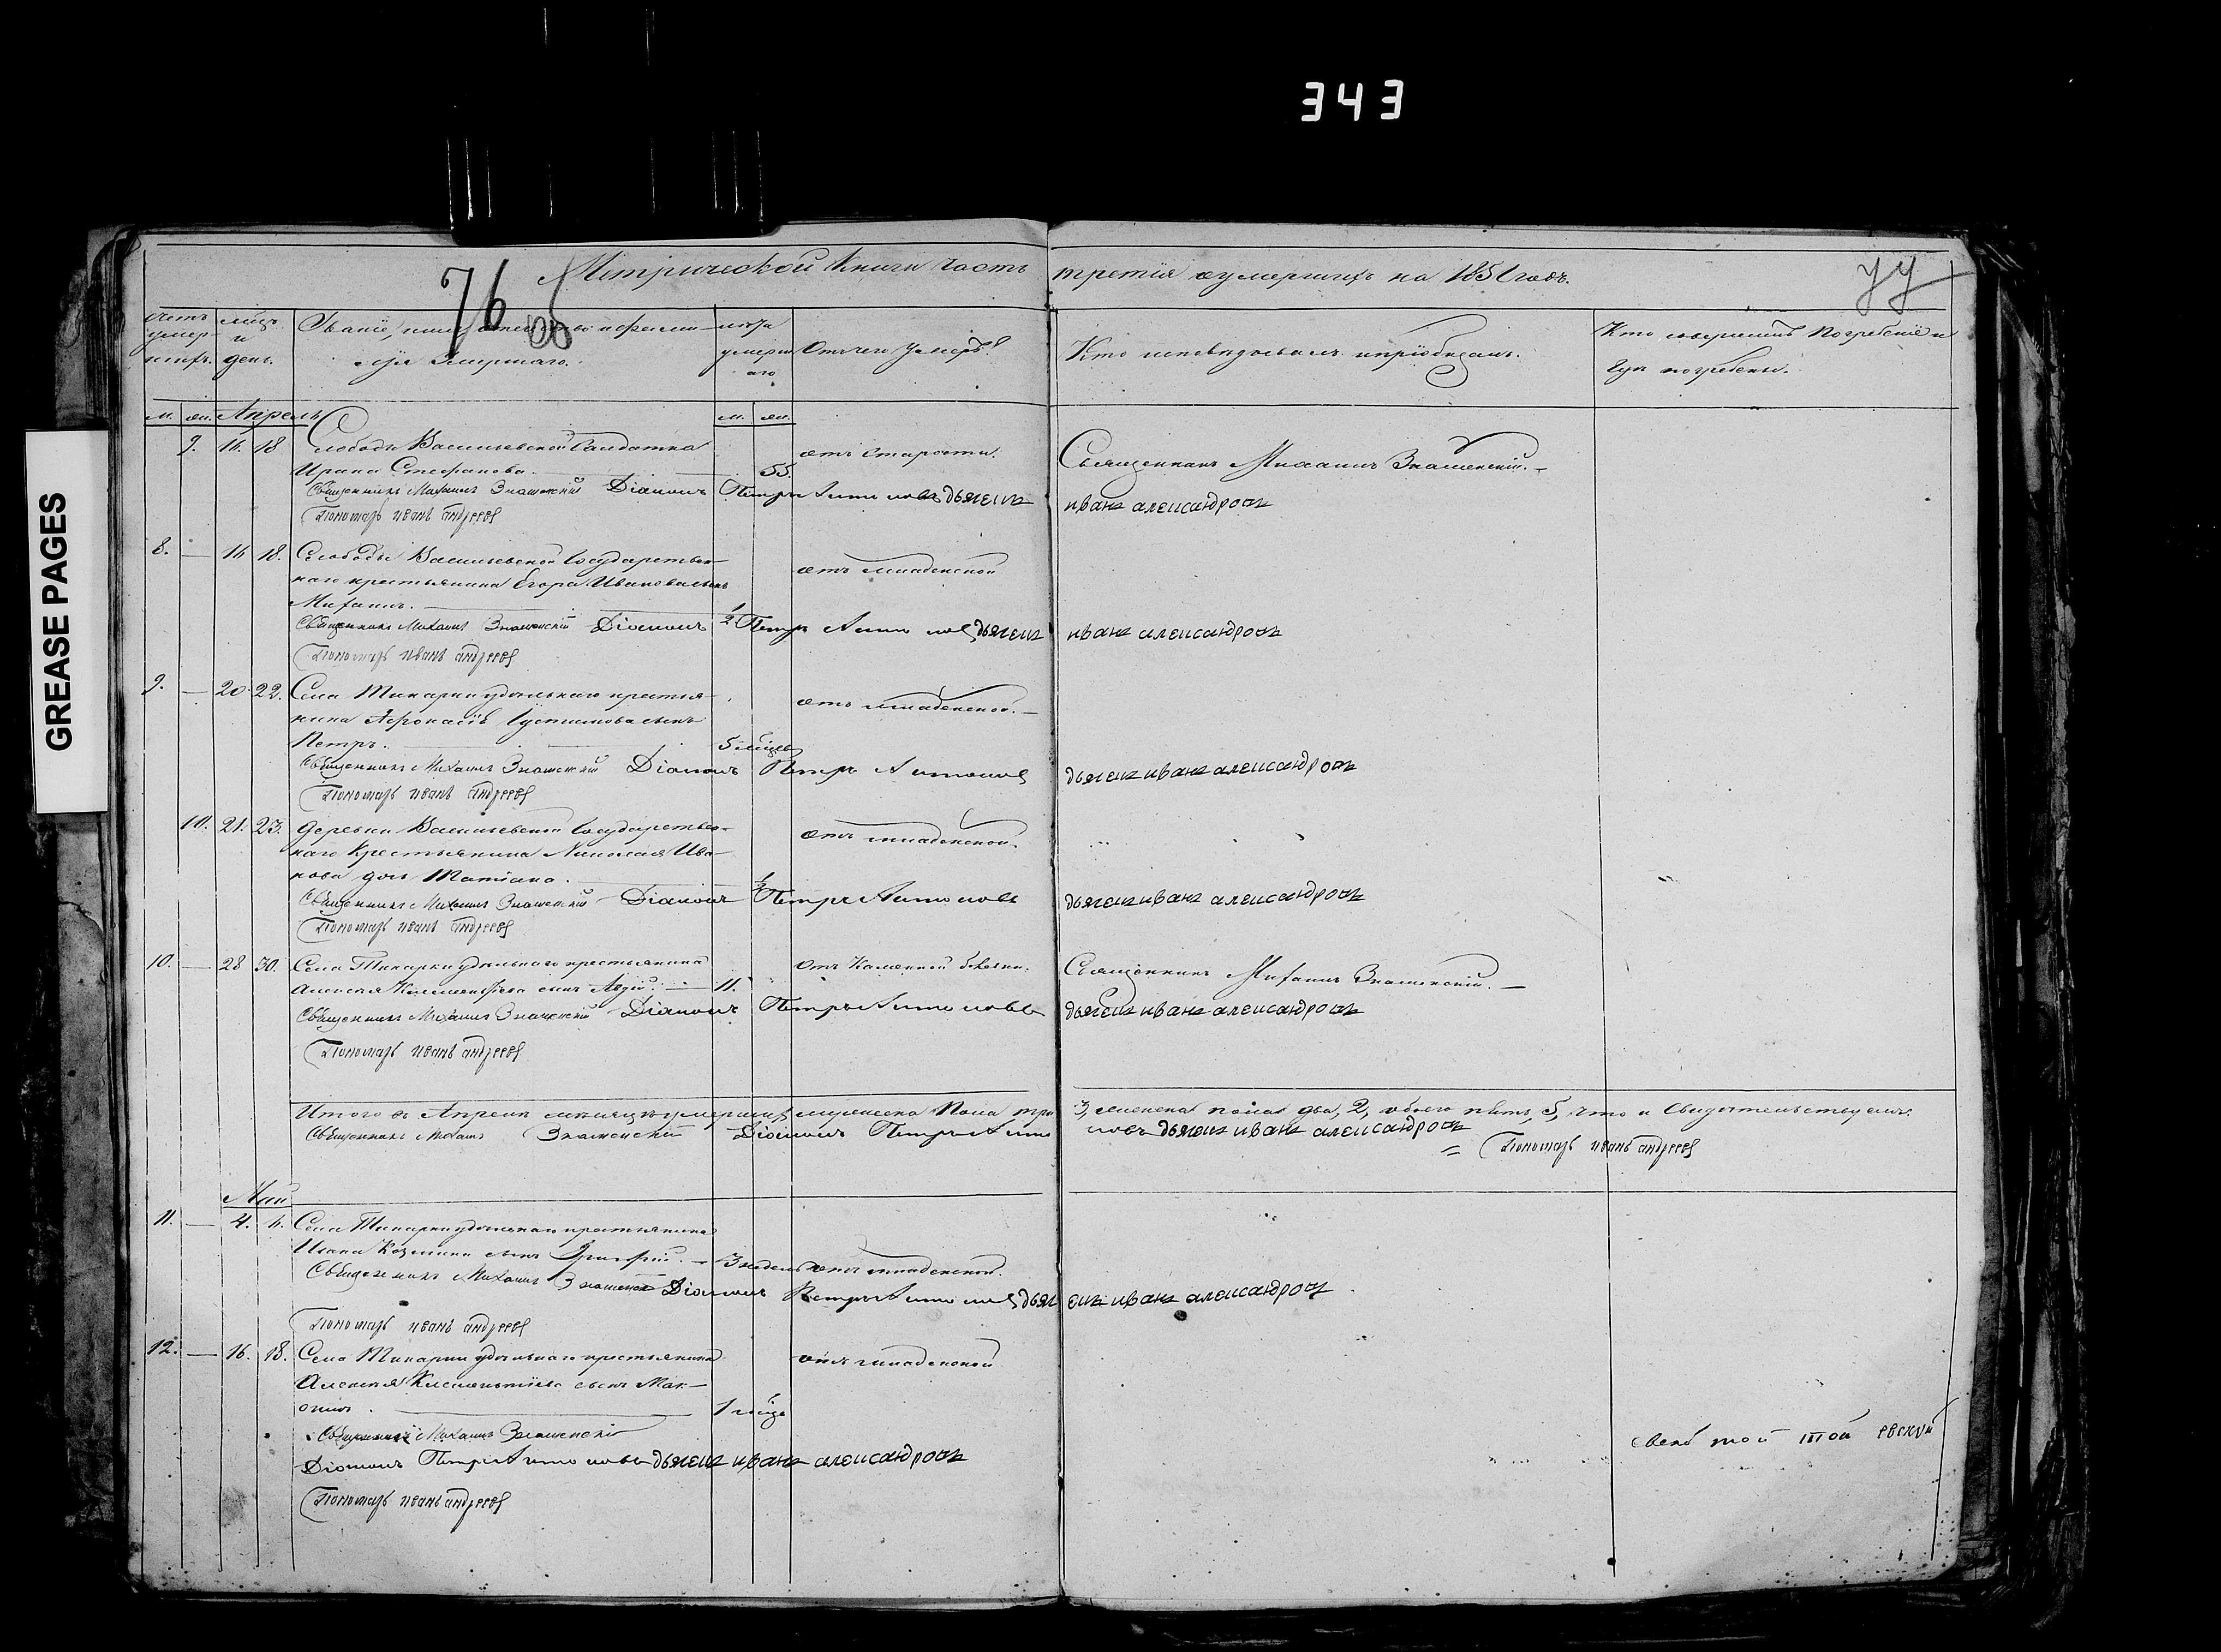 343
GREASE PAGES
76
Метрической книги часть третія оумершихъ на 1851 годъ.
Счетъ умер-шихъ.
м-цъ и день.
Званіе, имя, отчество и фамилія умершаго.
лѣта умершаго
Отъ чего умеръ?
Кто исповѣдывалъ и пріобщалъ.
Кто совершалъ погребеніе и гдѣ погребены.
м. жен. Апрель м. жен.
9. 16. 18 Слободы Васильевской Солдатка отъ старости. Священникъ Михаилъ Знаменскій.
Ирина Стефанова. 55.
Священникъ Михаилъ Знаменскій Діаконъ Петръ Антоновъ дьячекъ иванъ александровъ
Пономарь иванъ андреевъ
8. — 16 18. Слободы Васильевской Государствен-
наго крестьянина Егора Иванова сынъ отъ младенской
Михаилъ. 1/2
Священникъ Михаилъ Знаменскій Діаконъ Петръ Антоновъ дьячекъ иванъ александровъ
Пономарь иванъ андреевъ
9. — 20. 22. Села удѣльнаго крестья-
нина сынъ отъ младенской.
Петръ. 5 мѣсяцевъ
Священникъ Михаилъ Знаменскій Діаконъ Петръ Антоновъ дьячекъ иванъ александровъ
Пономарь иванъ андреевъ
10. 21. 23. деревни Васильевской Государствен-
наго Крестьянина Николая Ива- отъ младенской.
нова дочь Татіана.
Священникъ Михаилъ Знаменскій Діаконъ Петръ Антоновъ дьячекъ иванъ александровъ
Пономарь иванъ андреевъ
10. — 28 30. Села удѣльнаго крестьянина отъ Каменной болѣзни. Священникъ Михаилъ Знаменскій.
Алексея Климентьева сынъ 11.
Священникъ Михаилъ Знаменскій Діаконъ Петръ Антоновъ дьячекъ иванъ александровъ
Пономарь иванъ андреевъ
Итого въ Апрелѣ мѣсяцѣ умершихъ мужеска пола три 3, женска пола два, 2, обоего пять, 5, что и свидѣтельствуемъ.
Священникъ Михаилъ Знаменскій Діаконъ Петръ Антоновъ дьячекъ иванъ александровъ
Пономарь иванъ андреевъ
Май
11. — 4. 6. Села удѣльнаго крестьянина
Ивана Козмина сынъ Григорій. 3 недель отъ младенской.
Священникъ Михаилъ Знаменскій Діаконъ Петръ Антоновъ дьячекъ иванъ александровъ
Пономарь иванъ андреевъ
12. — 16. 18. Села удѣльнаго крестьянина отъ младенской
Алексея Климентьева сынъ Мак-
симъ. 1 мѣсяца
Священникъ Михаилъ Знаменскій
Діаконъ Петръ Антоновъ дьячекъ иванъ александровъ
Пономарь иванъ андреевъ